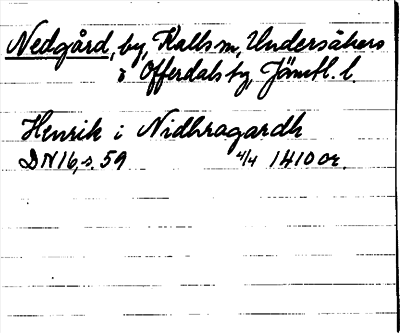 Nedgård, by, Kalls sn, Undersåkers
o Offerdals tg, Jämtl. l.
Henrik i Nidhragardh
DN16, s. 59 4/4 1410 or.